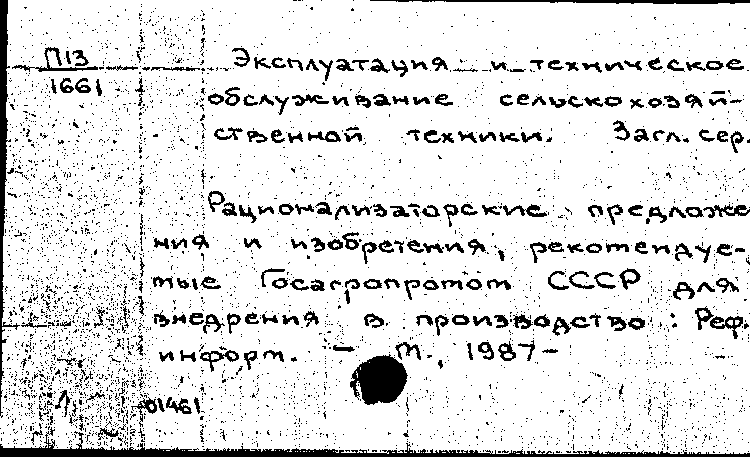 П13
1661
Эксплуатация и техническое
обслуживание сельскохозяй-
ственной техники. Загл. сер.
Рационализаторские предложе
ния и изобретения, рекоменduе-
мые Госагропромом СССР для
внедрения в производство : Реф.
информ. — М., 1987-
1
01461